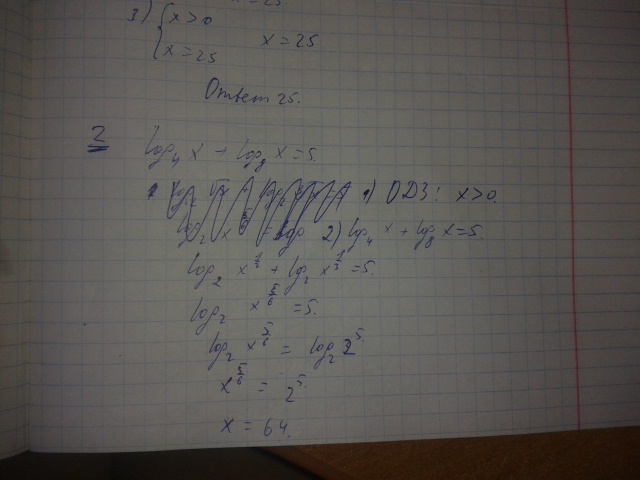 x = 25
3) { x > 0
x = 25
x = 25
Ответ 25.
2
log₄ x + log₈ x = 5.
1) ОДЗ: x > 0.
2) log₄ x + log₈ x = 5.
log₂ x^(1/2) + log₂ x^(1/3) = 5.
log₂ x^(5/6) = 5.
log₂ x^(5/6) = log₂ 2^5.
x^(5/6) = 2^5.
x = 64.